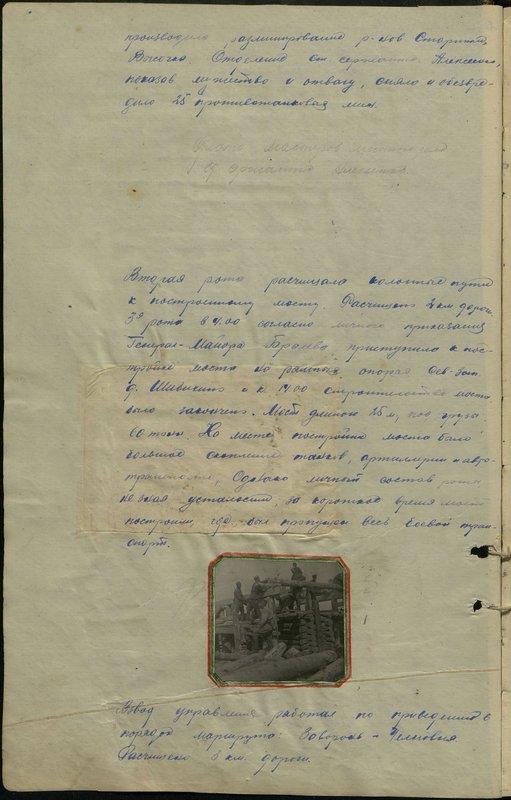 производила разминирование р-нов Старинки,
Высочка. Отделение ст. сержанта Алексеенко,
показав мужество и отвагу, сняло и обезвре-
дило 25 противотанковых мин.
Вторая рота расчищала колонные пути
к построенному мосту. Расчищено 2 км. дороги.
3я рота в 4.00 согласно личного приказания
Генерал-Майора приступила к пос-
тройке моста на рамных опорах
д. Шивихино и к 14.00 строительство моста
было закончено. Мост длиною 25 м, под грузы
60 тонн. На месте постройки моста было
большое скопление танков, артиллерии и авто-
транспорта, Однако личный состав роты
не зная усталости, за короткое время мост
построили, где был пропущен весь боевой тран-
спорт.
Взвод управления работал по приведению в
порядок маршрута: -
Расчищено 3 км. дороги.